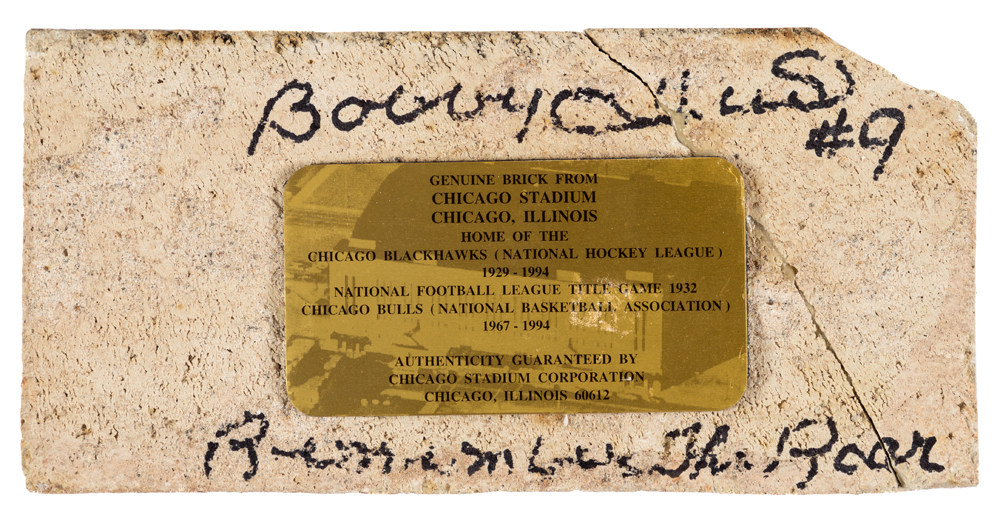 Bobby Hull
#9
GENUINE BRICK FROM
CHICAGO STADIUM
CHICAGO, ILLINOIS
HOME OF THE
CHICAGO BLACKHAWKS ( NATIONAL HOCKEY LEAGUE )
1929 - 1994
NATIONAL FOOTBALL LEAGUE TITLE GAME 1932
CHICAGO BULLS ( NATIONAL BASKETBALL ASSOCIATION )
1967 - 1994
AUTHENTICITY GUARANTEED BY
CHICAGO STADIUM CORPORATION
CHICAGO, ILLINOIS 60612
Remember The Roar